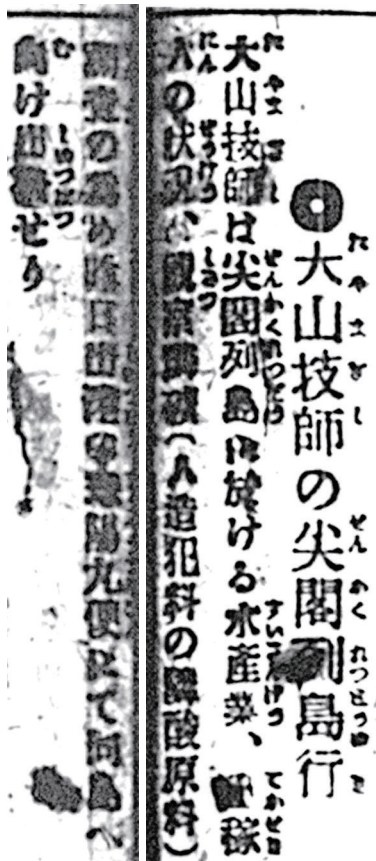 ◉大山技師の尖閣列島行
大山技師は尖閣列島に於ける水産業、稼
人の状況、燐礦(人造肥料の燐酸原料)
調査の為め昨日出港の丸便にて同島へ
向け出發せり